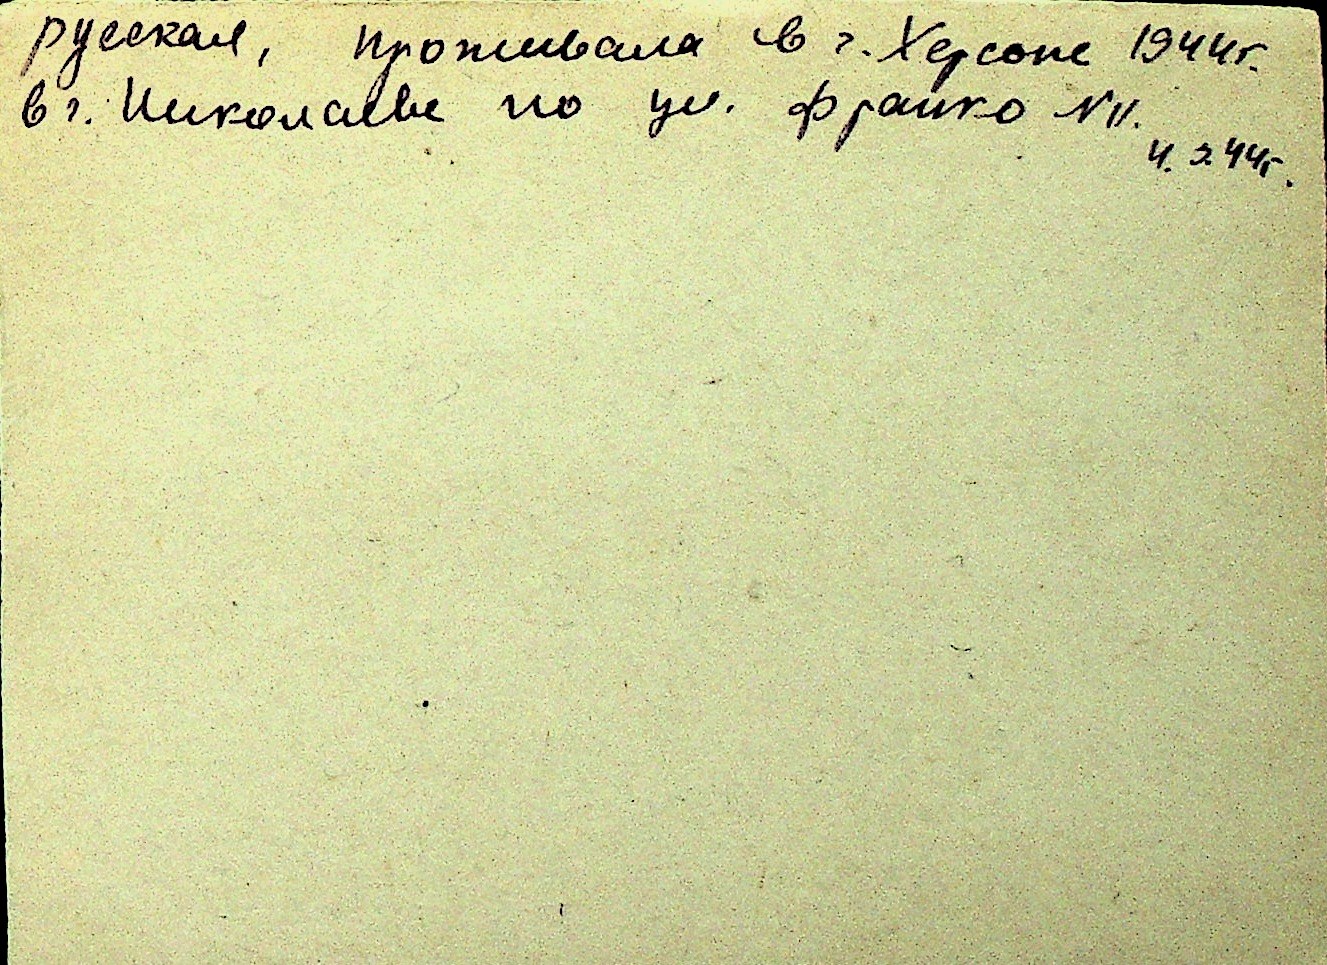 русская, проживала в г. Херсоне 1944г.
в г. Николаеве по ул. Франко №11.
4. 2. 44г.